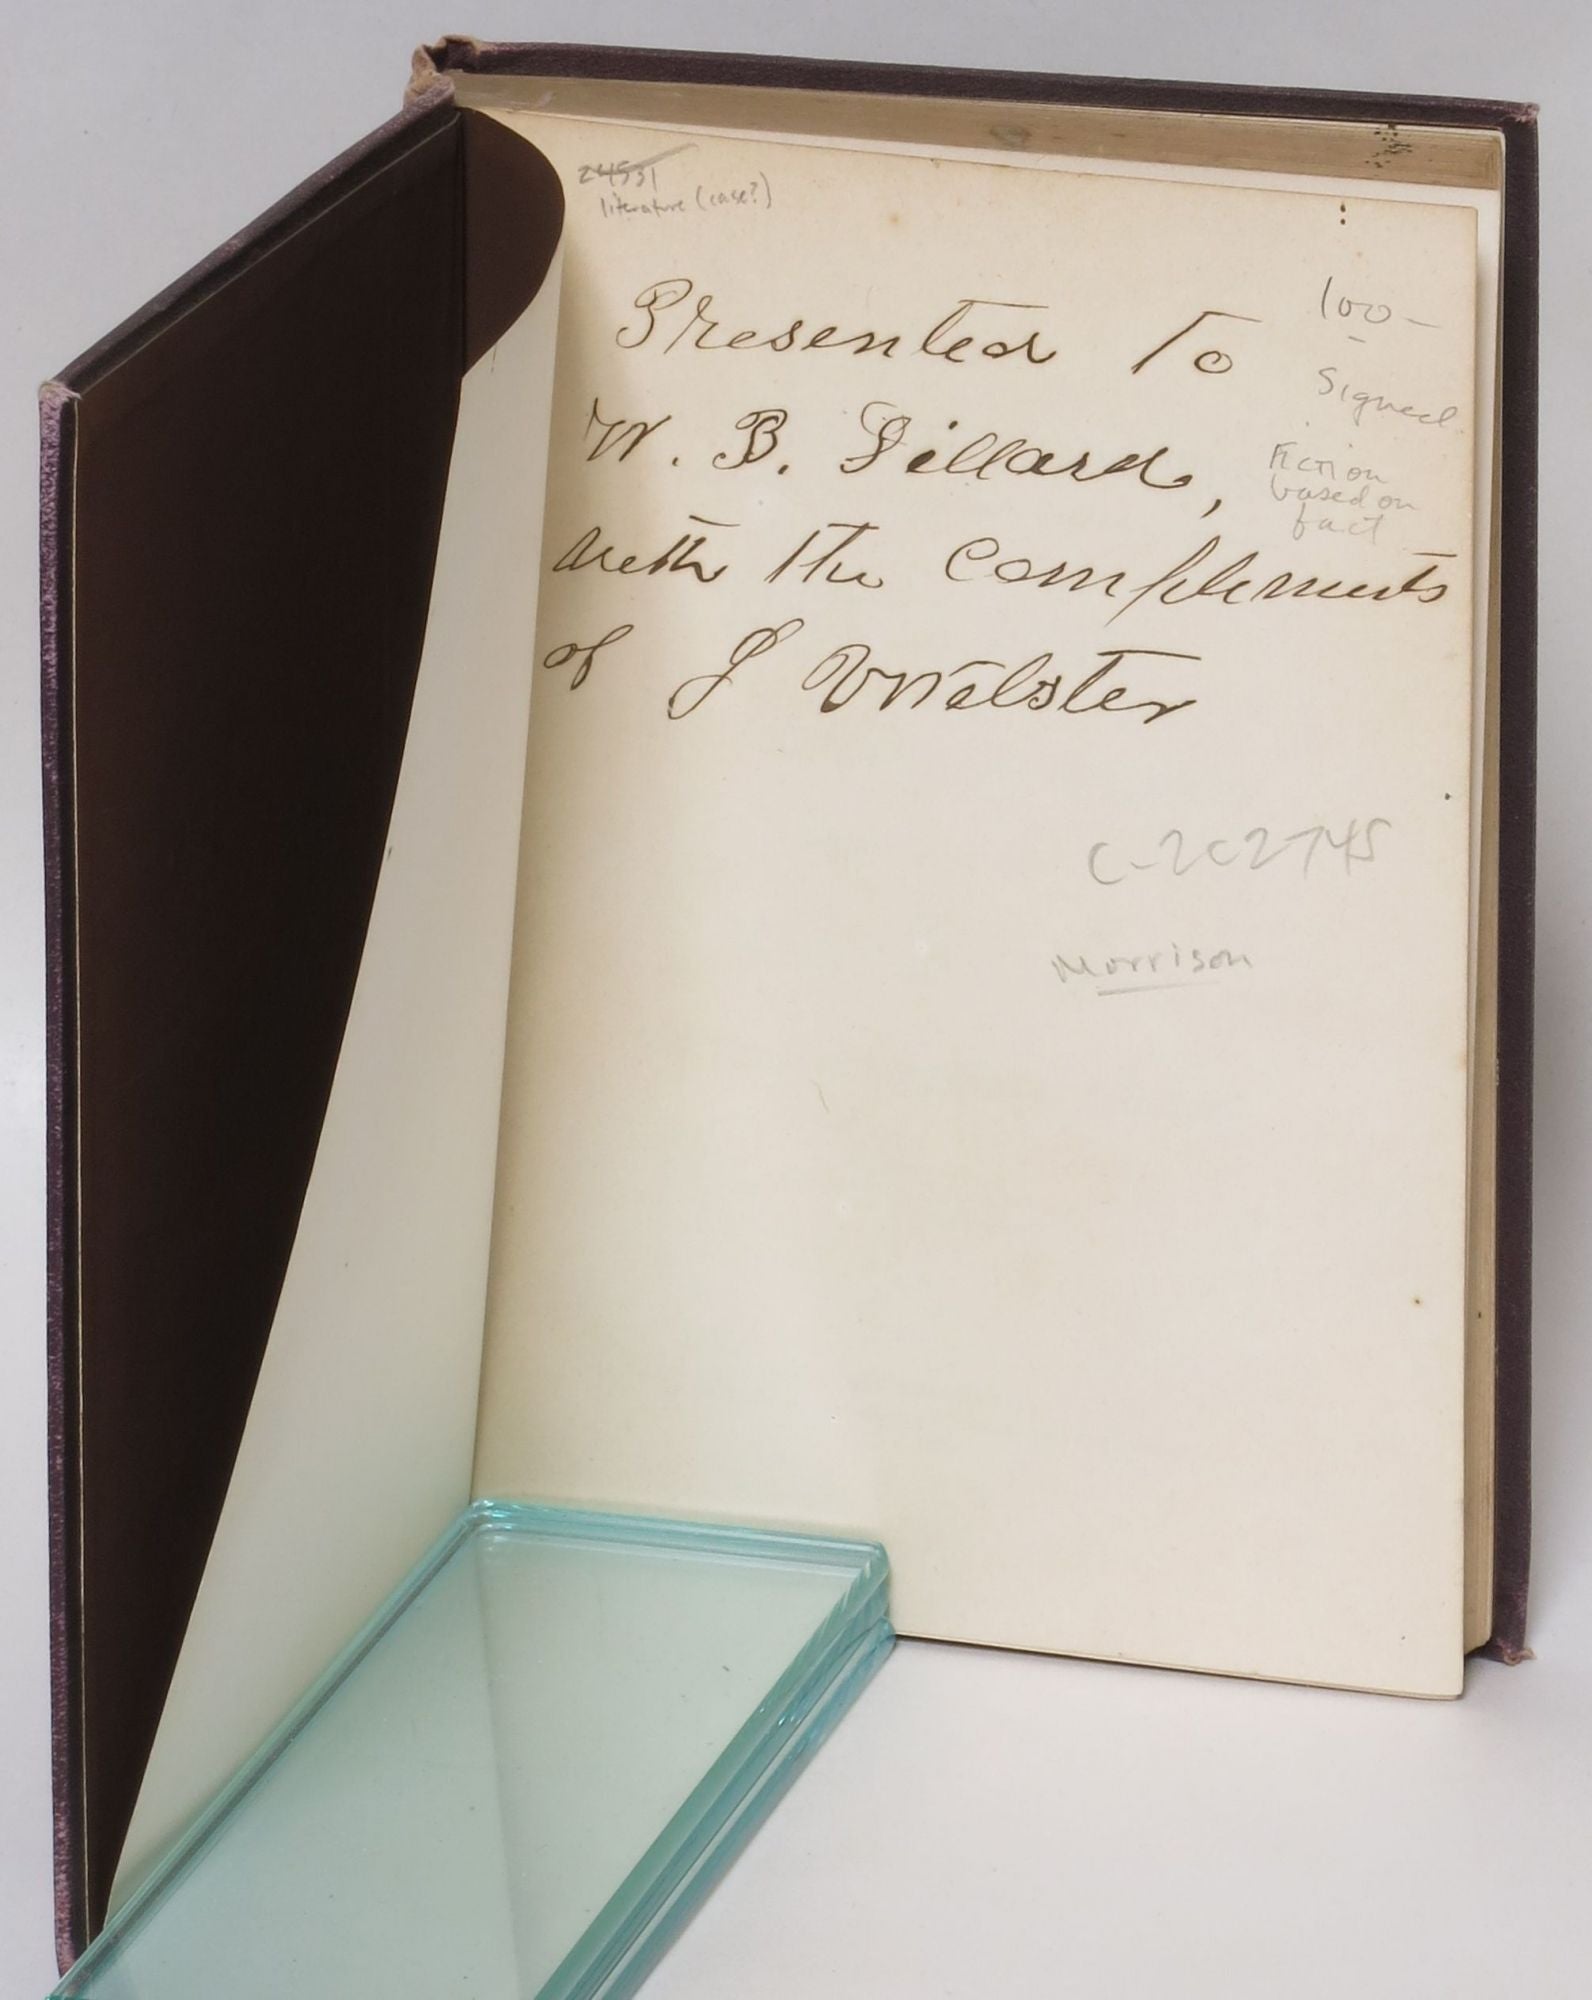 24531
literature (case?)
Presented To
100-
Signed
W. B. Dillard,
Fiction
based on
fact
with the compliments
of J Webster
C-2C2745
Morrison